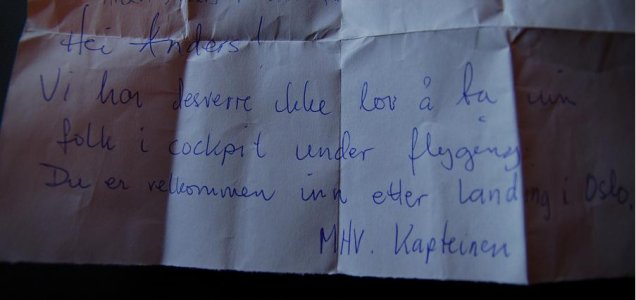 Hei Anders!
Vi har desverre ikke lov å ta inn
folk i cockpit under flygning
Du er velkommen inn etter landing i Oslo.
MHV. Kapteinen